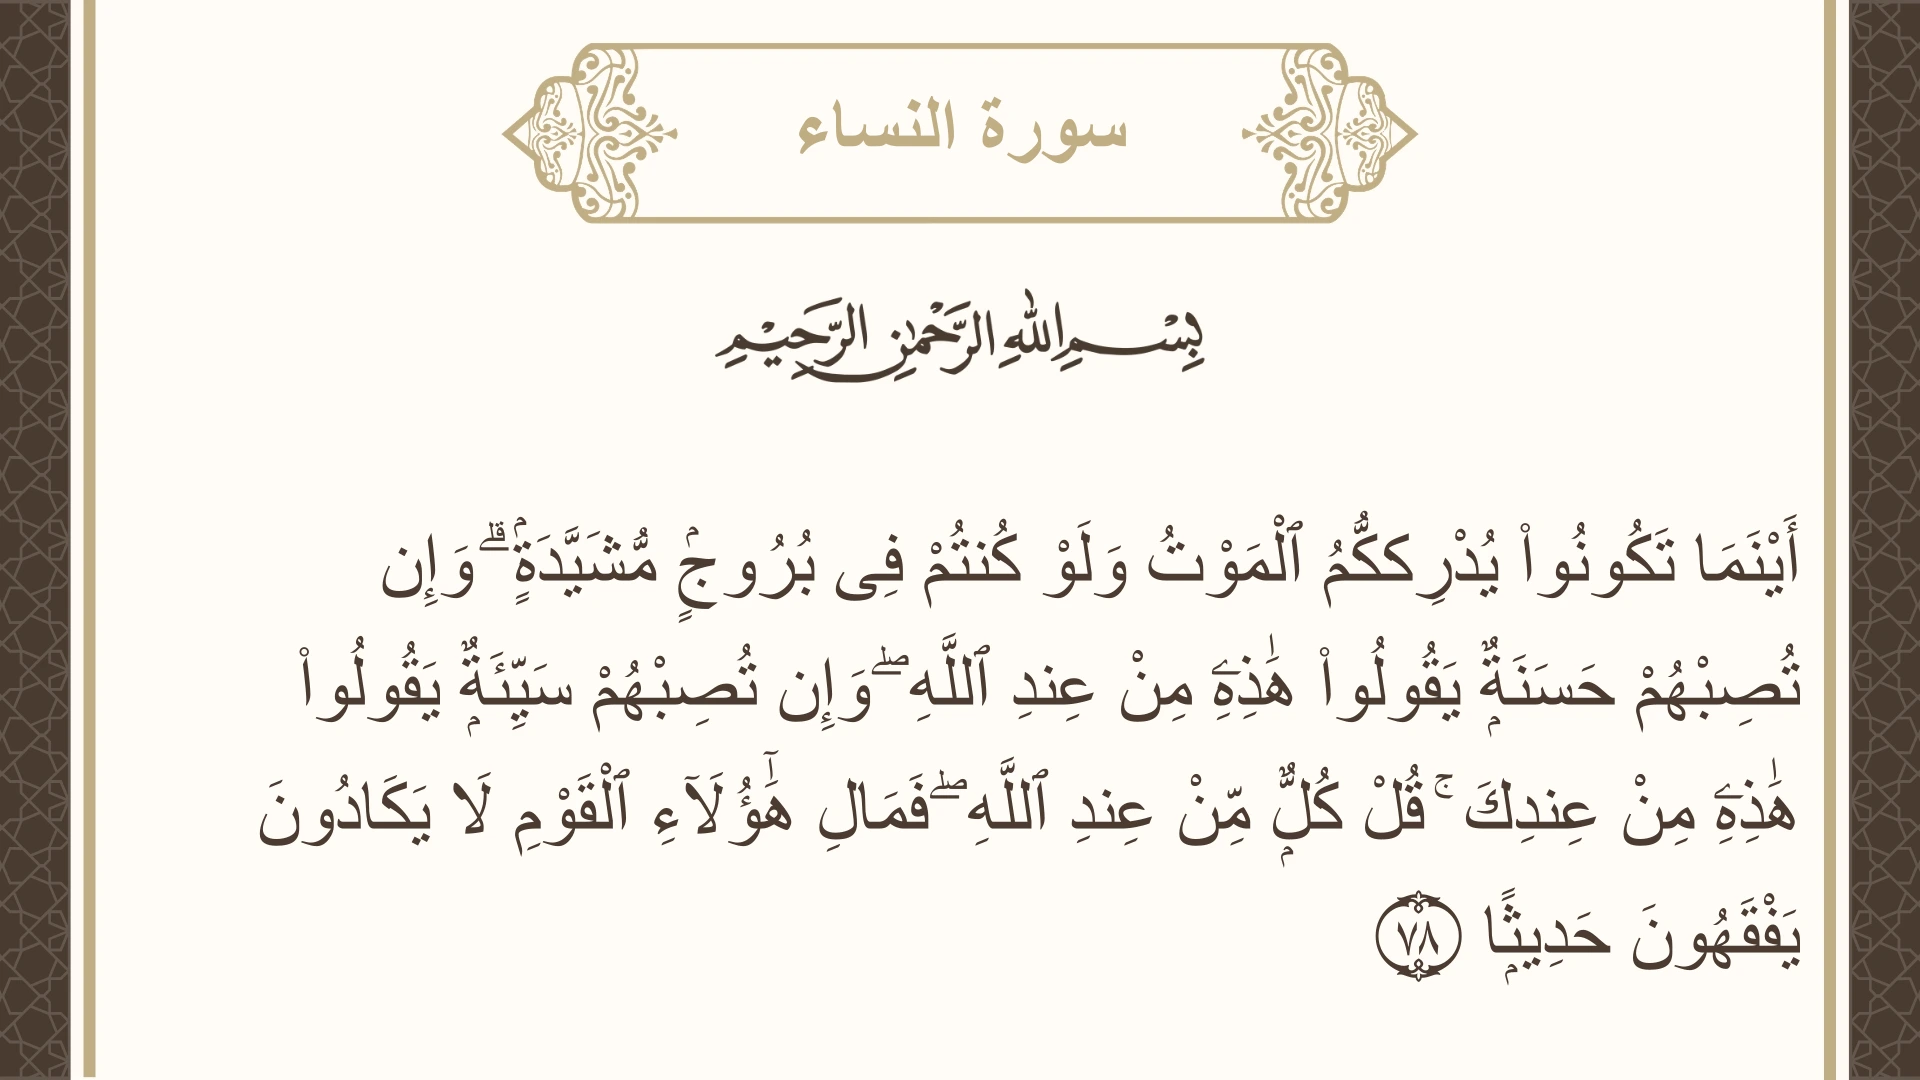 سورة النساء
بِسْمِ اللهِ الرَّحْمٰنِ الرَّحِيْمِ
أَيْنَمَا تَكُونُوا۟ يُدْرِككُّمُ ٱلْمَوْتُ وَلَوْ كُنتُمْ فِى بُرُوجٍۢ مُّشَيَّدَةٍۢ ۗ وَإِن
تُصِبْهُمْ حَسَنَةٌۭ يَقُولُوا۟ هَٰذِهِۦ مِنْ عِندِ ٱللَّهِ ۖ وَإِن تُصِبْهُمْ سَيِّئَةٌۭ يَقُولُوا۟
هَٰذِهِۦ مِنْ عِندِكَ ۚ قُلْ كُلٌّۭ مِّنْ عِندِ ٱللَّهِ ۖ فَمَالِ هَٰٓؤُلَآءِ ٱلْقَوْمِ لَا يَكَادُونَ
يَفْقَهُونَ حَدِيثًۭا ٧٨